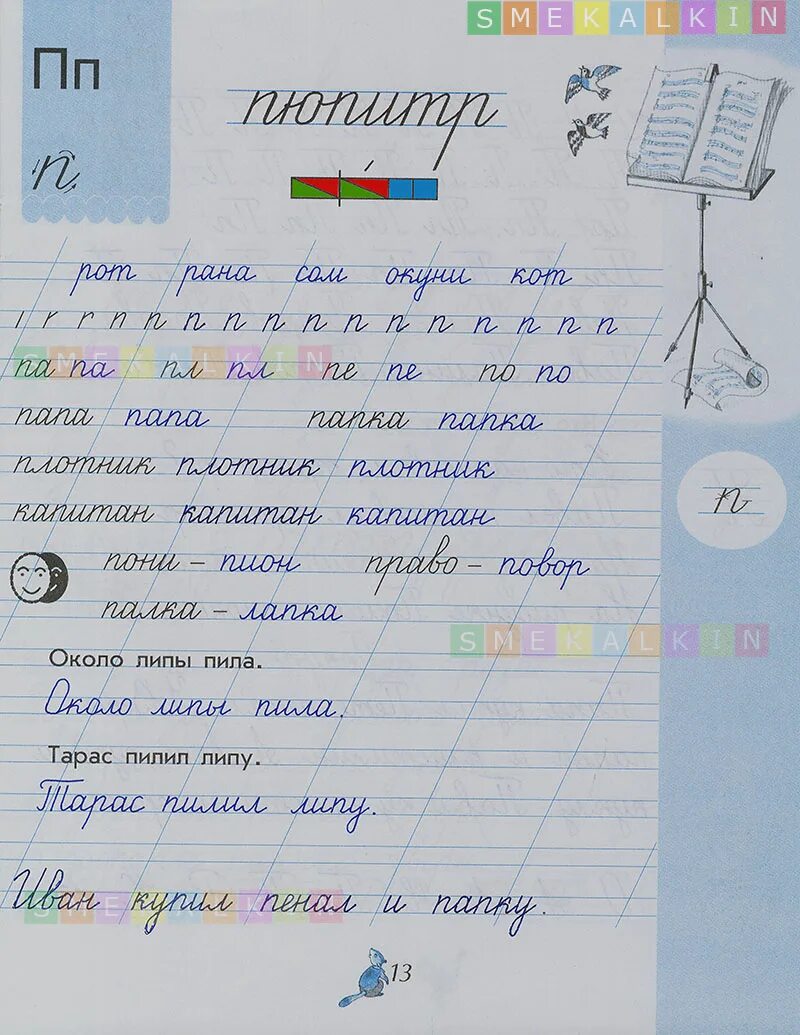 SMEKALKIN
Пп
п
пюпитр
рот рана сом окуни кот
г г п п п п п п п п п п п п п п п
SMEKALKIN
па па пл пл пе пе по по
папа папа папка папка
плотник плотник плотник
капитан капитан капитан
п
пони – пион право – повор
палка – лапка
SMEKALKIN
Около липы пила.
Около липы пила.
Тарас пилил липу.
Тарас пилил липу.
Иван купил пенал и папку.
SMEKALKIN
13